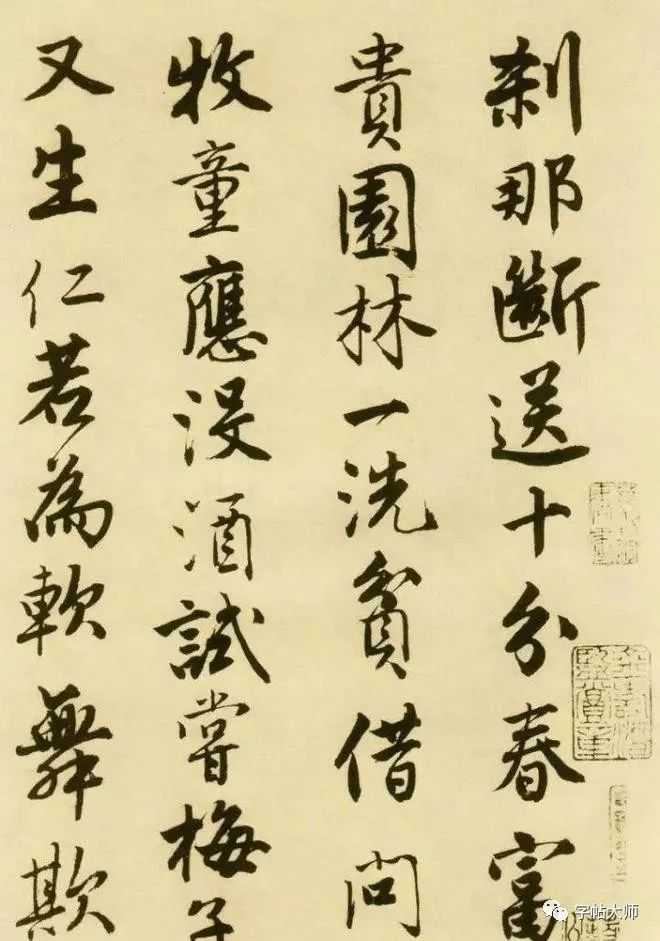 剎那斷送十分春富
貴園林一洗貧借問
牧童應沒酒試嘗梅子
又生仁若為軟舞欺
字帖大师